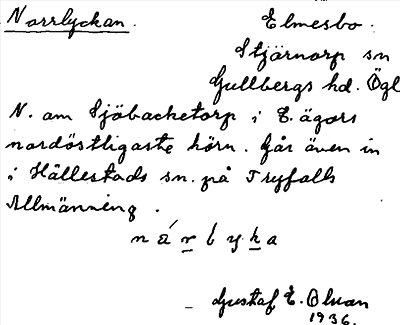 Norrlyckan.
Elmesbo.
Stjärnorp sn
Gullbergs hd. Ögl
N. om Sjöbacketorp i E. ägors
nordöstligaste hörn. Går även in
i Hällestads sn. på Tryfalls
Allmänning.
Gustaf E. Olsson
1936.